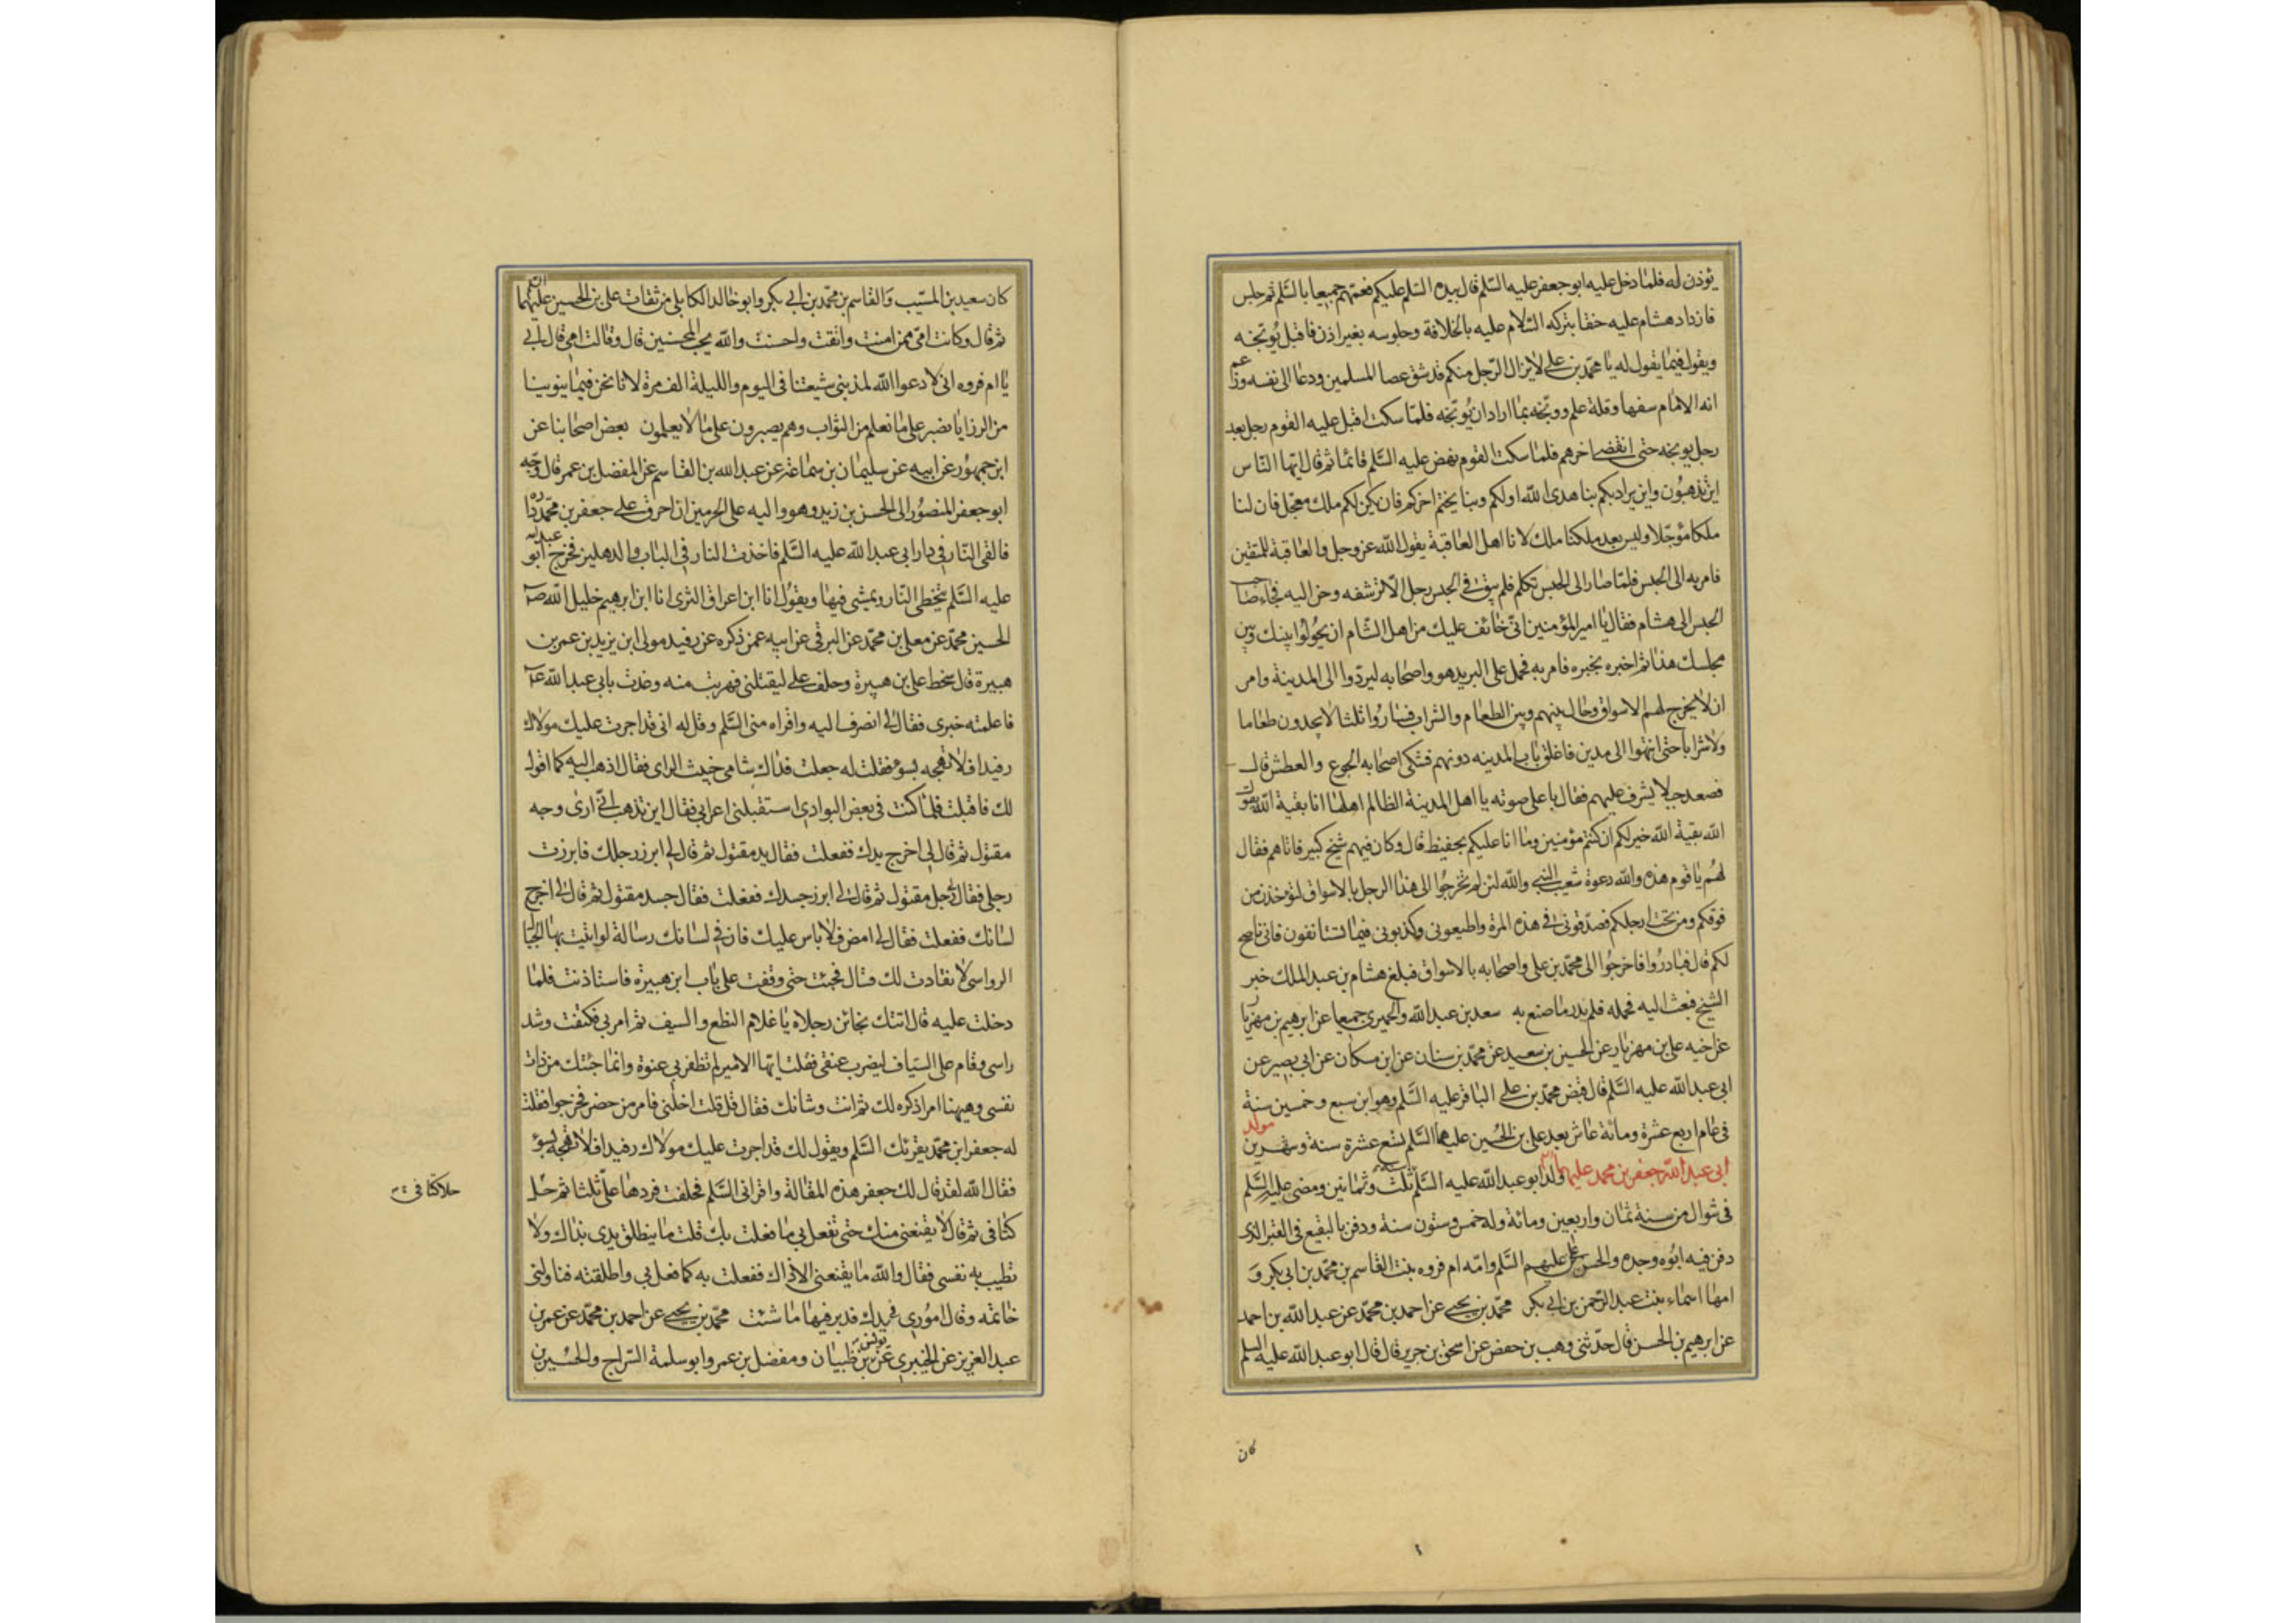 يؤذن له فلما دخل عليه ابو جعفر عليه السلم قال بيده السلم عليكم فعمهم جميعا بالسلم ثم جلس
فازداد هشام عليه حنقا بتركه السلام عليه بالخلافة وجلوسه بغير اذن فاقبل يوبخه
ويقول فيما يقول له يا محمد بن علي لا يزال الرجل منكم قد شق عصا المسلمين ودعا الى نفسه وزعم
انه الامام سفها وقلة علم ووبخه بما اراد ان يوبخه فلما سكت اقبل عليه القوم رجل بعد
رجل يوبخه حتى انقضى اخرهم فلما سكت القوم نهض عليه السلم قائما ثم قال ايها الناس
اين تذهبون واين يراد بكم بنا هدى الله اولكم وبنا يختم اخركم فان يكن لكم ملك معجل فان لنا
ملكا مؤجلا وليس بعد ملكنا ملك لانا اهل العاقبة يقول الله عز وجل والعاقبة للمتقين
فامر به الى الحبس فلما صار الى الحبس تكلم فلم يبق في الحبس رجل الا ترشفه وحن اليه فجاء صاحب
الحبس الى هشام فقال يا امير المؤمنين اني خائف عليك من اهل الشام ان يحولوا بينك وبين
مجلسك هذا ثم اخبره بخبره فامر به فحمل على البريد هو واصحابه ليردوا الى المدينة وامر
ان لا يخرج لهم الاسواق وحال بينهم وبين الطعام والشراب فساروا ثلثا لا يجدون طعاما
ولا شرابا حتى انتهوا الى مدين فاغلق باب المدينه دونهم فشكى اصحابه الجوع والعطش قال
فصعد جبلا يشرف عليهم فقال باعلى صوته يا اهل المدينة الظالم اهلها انا بقية الله يقول
الله بقية الله خير لكم ان كنتم مؤمنين وما انا عليكم بحفيظ قال وكان فيهم شيخ كبير فاتاهم فقال
لهم يا قوم هذه والله دعوة شعيب النبي والله لئن لم تخرجوا الى هذا الرجل بالاسواق لتؤخذن من
فوقكم ومن تحت ارجلكم فصدقوني في هذه المرة واطيعوني وكذبوني فيما تستانفون فاني ناصح
لكم قال فبادروا فاخرجوا الى محمد بن علي واصحابه بالاسواق فبلغ هشام بن عبد الملك خبر
الشيخ فبعث اليه فحمله فلم يدر ما صنع به سعد بن عبد الله والحميري جميعا عن ابرهيم بن مهزيار
عن اخيه علي بن مهزيار عن الحسين بن سعيد عن محمد بن سنان عن ابن مسكان عن ابي بصير عن
ابي عبد الله عليه السلم قال قبض محمد بن علي الباقر عليه السلم وهو ابن سبع وخمسين سنة
في عام اربع عشرة ومائة عاش بعد علي بن الحسين عليهما السلم تسع عشرة سنة وشهرين مولد
ابي عبد الله جعفر بن محمد عليهما ولد ابو عبد الله عليه السلم سنة ثلث وثمانين ومضى عليه السلم
في شوال من سنة ثمان واربعين ومائة وله خمس وستون سنة ودفن بالبقيع في القبر الذي
دفن فيه ابوه وجده والحسن بن علي عليهم السلم وامه ام فروه بنت القاسم بن محمد بن ابي بكر و
امها اسماء بنت عبد الرحمن بن ابي بكر محمد بن يحيى عن احمد بن محمد عن عبد الله بن احمد
عن ابرهيم بن الحسن قال حدثني وهب بن حفص عن اسحق بن جرير قال قال ابو عبد الله عليه السلم
كان
كان سعيد بن المسيب والقاسم بن محمد بن ابي بكر وابو خالد الكابلي من ثقات علي بن الحسين عليهما السلم
ثم قال وكانت امي ممن امنت واتقت واحسنت والله يحب المحسنين قال وقالت امي قال ابي
يا ام فروه اني لادعو الله لمذنبي شيعتنا في اليوم والليلة الف مرة لانا نحن فيما ينوبنا
من الرزايا نصبر على ما نعلم من الثواب وهم يصبرون على ما لا يعلمون بعض اصحابنا عن
ابن جمهور عن ابيه عن سليمان بن سماعة عن عبد الله بن القاسم عن المفضل بن عمر قال وجه
ابو جعفر المنصور الى الحسن بن زيد وهو واليه على الحرمين ان احرق على جعفر بن محمد داره
فالقى النار في دار ابي عبد الله عليه السلم فاخذت النار في الباب والدهليز فخرج ابو عبد الله
عليه السلم يتخطى النار ويمشي فيها ويقول انا ابن اعراق الثرى انا ابن ابرهيم خليل الله ص
الحسين محمد عن معلى بن محمد عن البرقي عن ابيه عمن ذكره عن رفيد مولى ابن يزيد بن عمر بن
هبيرة قال سخط علي بن هبيرة وحلف علي ليقتلني فهربت منه وعذت بابي عبد الله ع
فاعلمته خبري فقال لي انصرف اليه واقراه مني السلم وقل له اني قد اجرت عليك مولاك
رفيدا فلا تهجه بسوء فقلت له جعلت فداك شامي خبيث الراى فقال اذهب اليه كما اقول
لك فاقبلت فلما كنت في بعض البوادي استقبلني اعرابي فقال اين تذهب اني ارى وجه
مقتول ثم قال لي اخرج يدك ففعلت فقال يد مقتول ثم قال لي ابرز رجلك فابرزت
رجلي فقال رجل مقتول ثم قال لي ابرز جسدك ففعلت فقال جسد مقتول ثم قال لي اخرج
لسانك ففعلت فقال لي امض فلا باس عليك فان في لسانك رسالة لو اتيت بها الجبال
الرواسي لانقادت لك قال فجئت حتى وقفت على باب ابن هبيرة فاستاذنت فلما
دخلت عليه قال اتتك بخائن رجلاه يا غلام النطع والسيف ثم امر بي فكتفت وشد
راسي وقام علي السياف ليضرب عنقي فقلت ايها الامير لم تظفر بي عنوة وانما جئتك من ذات
نفسي وهيهنا امر اذكره لك ثم انت وشانك فقال قل قلت اخلني فامر من حضر فخرجوا فقلت
له جعفر ابن محمد يقرئك السلم ويقول لك قد اجرت عليك مولاك رفيدا فلا تهجه بسوء
فقال الله لقد قال لك جعفر هذه المقالة واقراني السلم فحلفت فردها علي ثلثا ثم حل
كتافي ثم قال لا يقنعني منك حتى تفعل بي ما فعلت بك قلت ما ينطلق يدي بذاك ولا
تطيب به نفسي فقال والله ما يقنعني الا ذاك ففعلت به كما فعل بي واطلقته فناولني
خاتمه وقال اموري في يدك فدبر فيها ما شئت محمد بن يحيى عن احمد بن محمد عن عمر بن
عبد العزيز عن الخيبري عن يونس بن ظبيان ومفضل بن عمر وابو سلمة السراج والحسين بن